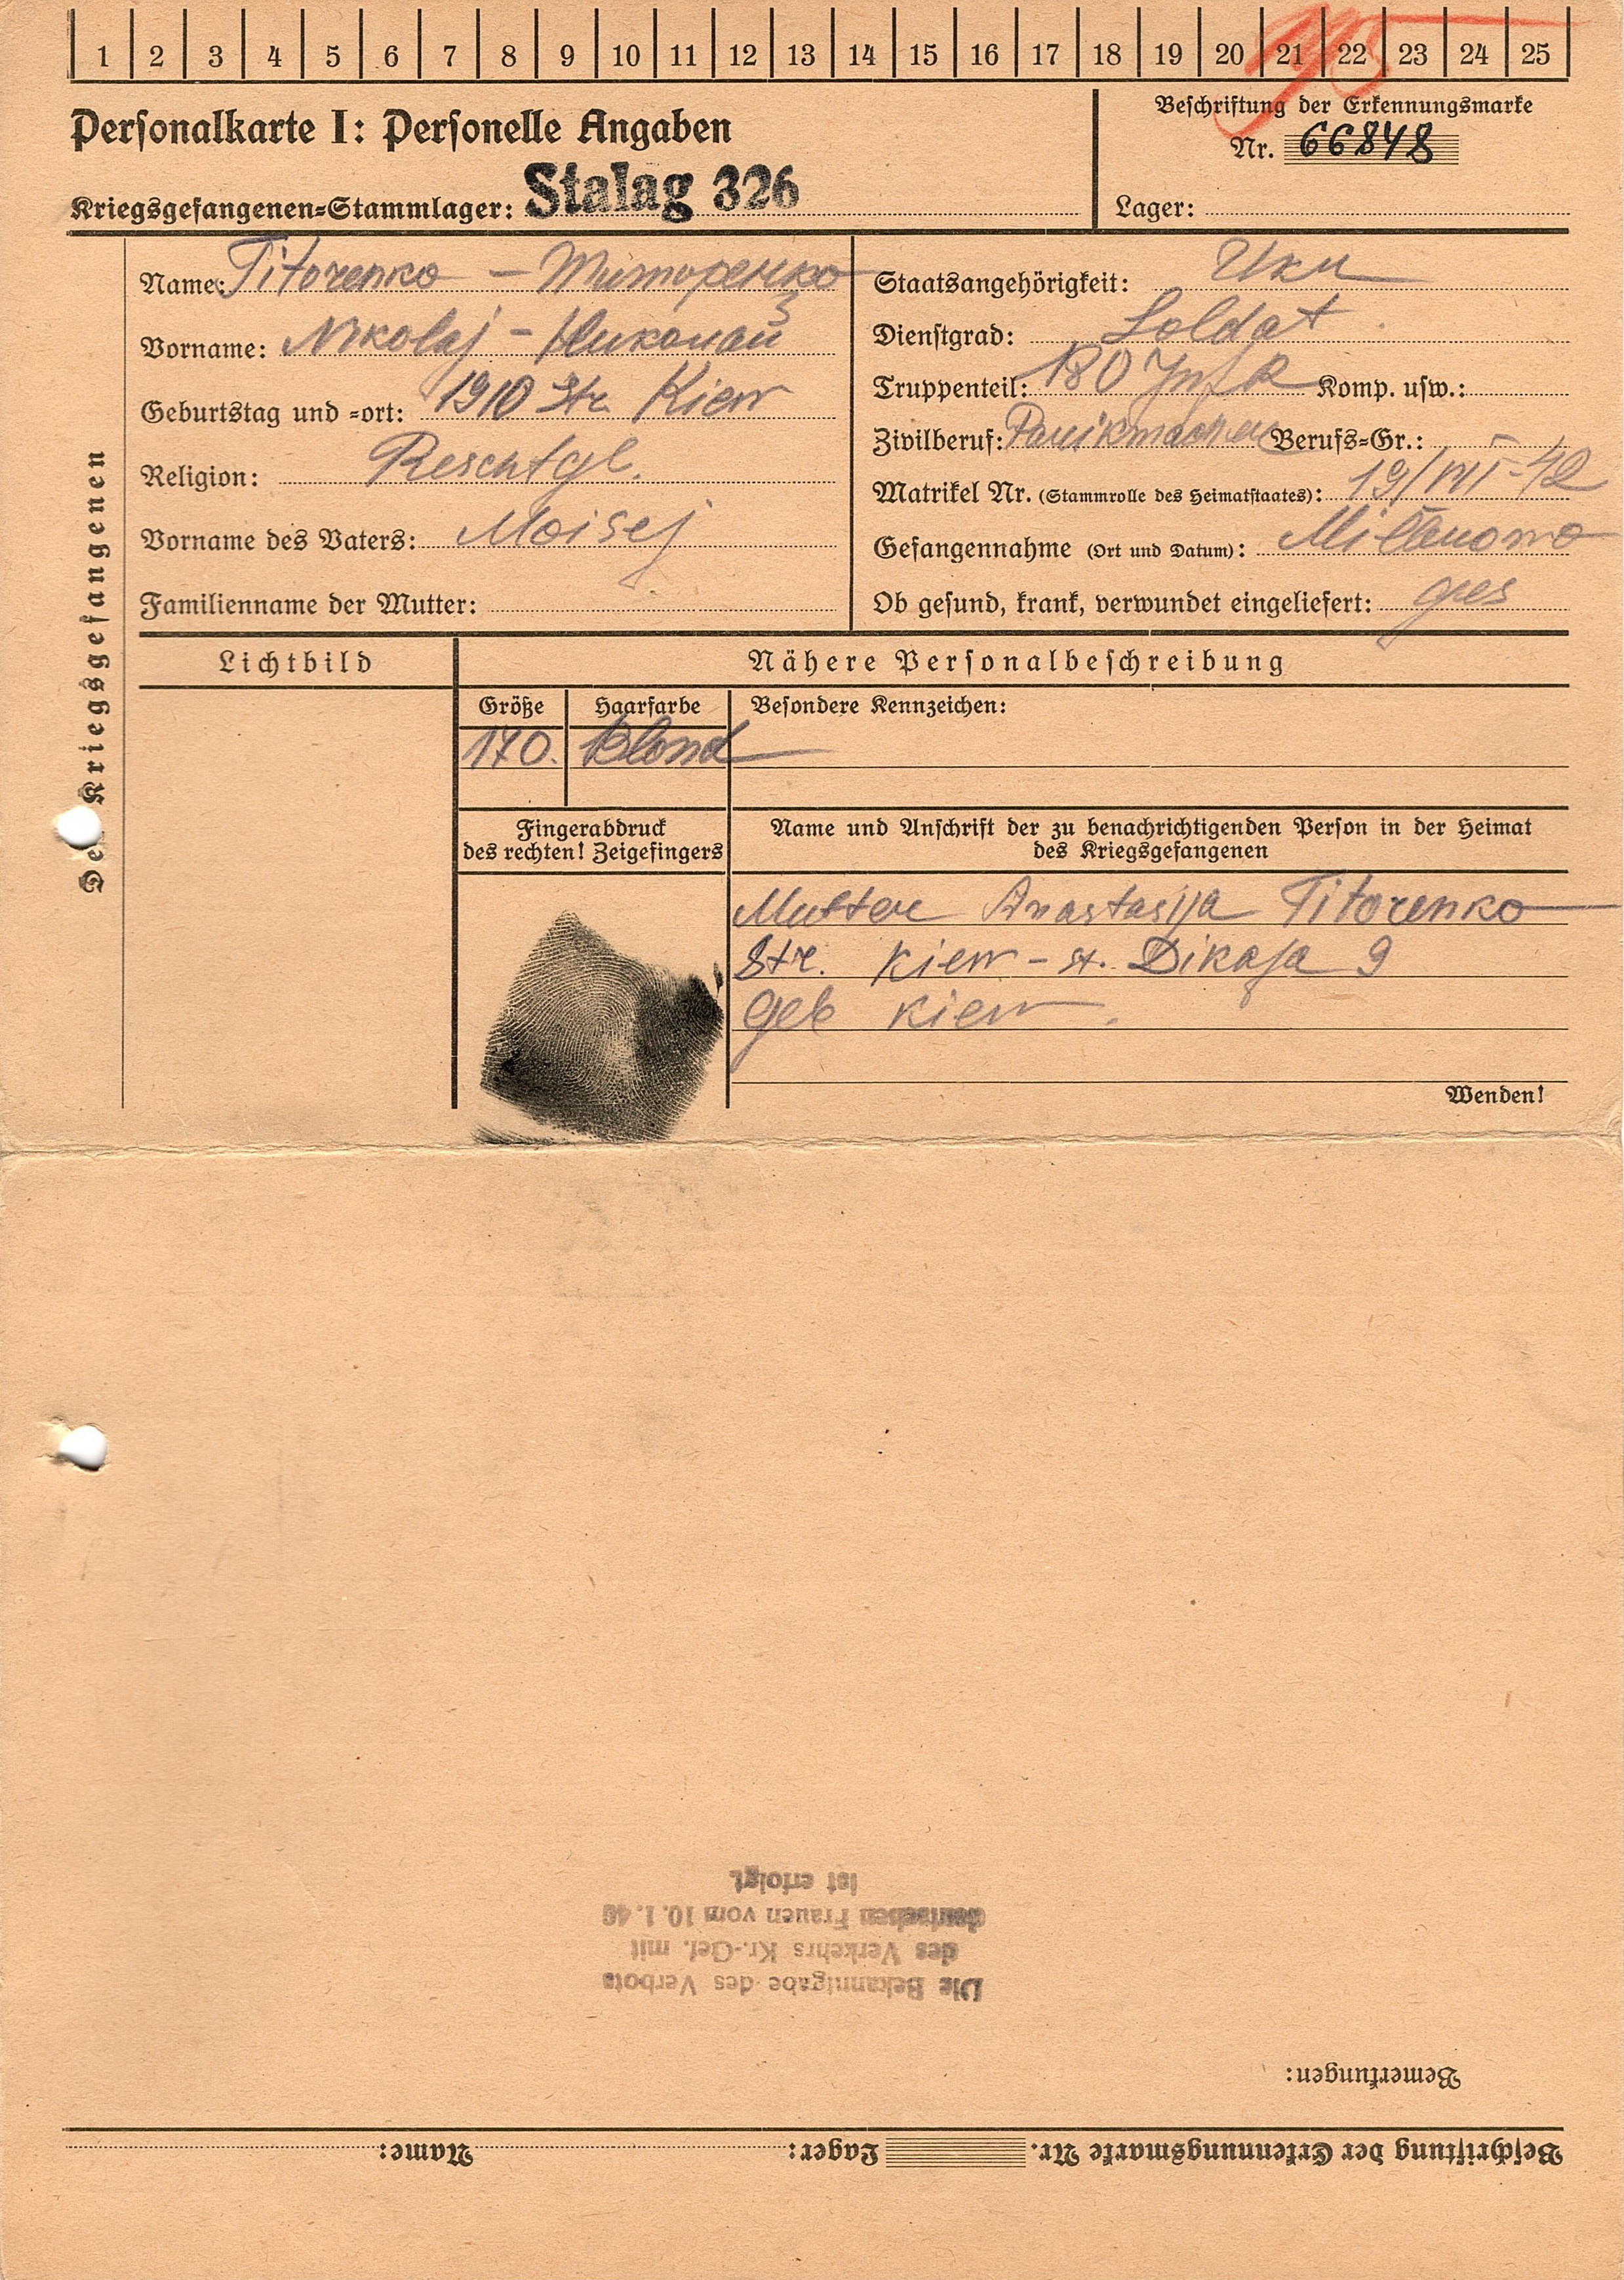 1 2 3 4 5 6 7 8 9 10 11 12 13 14 15 16 17 18 19 20 21 22 23 24 25
Personalkarte I: Personelle Angaben
Kriegsgefangenen-Stammlager: Stalag 326
Beschriftung der Erkennungsmarke
Nr. 66848
Lager:
Des Kriegsgefangenen
Name: Titorenko – Титоренко
Vorname: Nikolaj – Николай
Geburtstag und -ort: 1910 Str. Kiew
Religion:
Vorname des Vaters: Moisej
Familienname der Mutter:
Staatsangehörigkeit: Ukr
Dienstgrad: Soldat
Truppenteil: 180 Inf R Komp. usw.:
Zivilberuf: Berufs-Gr.:
Matrikel Nr. (Stammrolle des Heimatstaates): 19/VII-42
Gefangennahme (Ort und Datum):
Ob gesund, krank, verwundet eingeliefert: ges
Lichtbild
Nähere Personalbeschreibung
Größe Haarfarbe Besondere Kennzeichen:
170. Blond
Fingerabdruck
des rechten! Zeigefingers
Name und Anschrift der zu benachrichtigenden Person in der Heimat
des Kriegsgefangenen
Mutter Anastasija Titorenko
Str. Kiew – st. Dikaja 9
Geb Kiew.
Wenden!
Beschriftung der Erkennungsmarke Nr. Lager: Name:
Bemerkungen:
Die Bekanntgabe des Verbots
des Verkehrs Kr.-Gef. mit
deutschen Frauen vom 10.1.40
ist erfolgt.